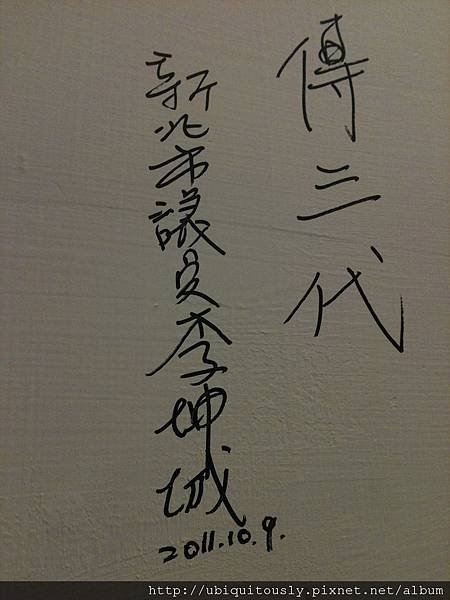 傳三代
新北市議員李坤城
2011.10.9.
http://ubiquitously.pixnet.net/album